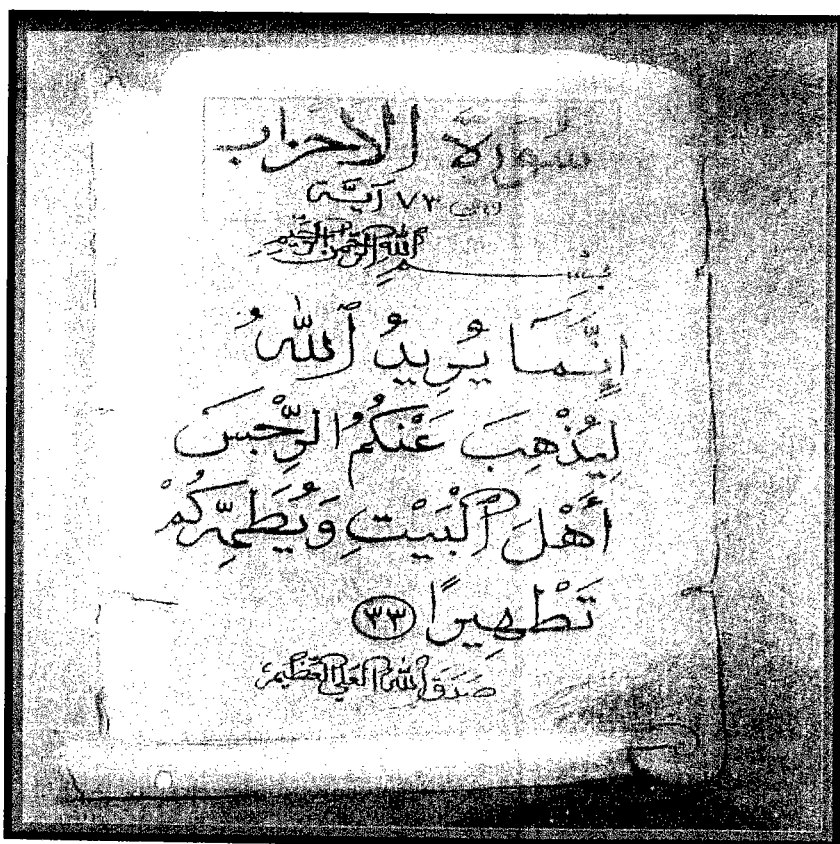 سورة الاحزاب
وهي ٧٣ آية
بسم الله الرحمن الرحيم
إِنَّمَا يُرِيدُ ٱللَّهُ
لِيُذْهِبَ عَنكُمُ الرِّجْسَ
أَهْلَ ٱلْبَيْتِ وَيُطَهِّرَكُمْ
تَطْهِيرًا ٣٣
صدق الله العلي العظيم